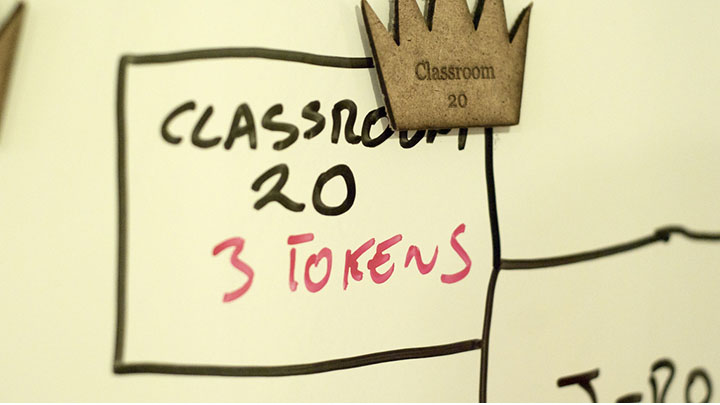 Classroom
20
CLASSROOM
20
3 TOKENS